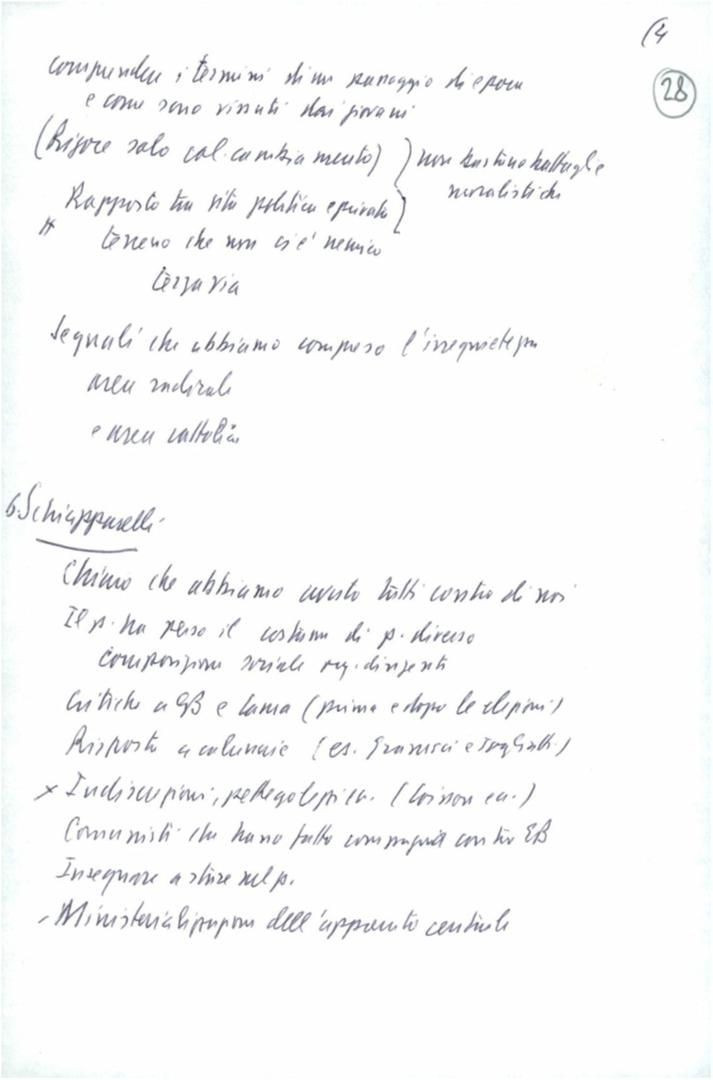 (4
28
comprendere i termini di un passaggio di epoca
e come sono vissuti dai giovani
(Rigore solo col cambiamento) } non bastano battaglie
moralistiche
Rapporto tra vita politica e privata }
* terreno che non ci è nemico
terza via
Segnali che abbiamo compreso l'irrequietezza
area radicale
e area cattolica
6. Schiapparelli
Chiaro che abbiamo avuto tutti contro di noi
Il p. ha perso il costume di p. diverso
Composizione sociale org. dirigenti
Critiche a EB e Lama (prima e dopo le elezioni)
Risposte a calunnie (es. Gramsci e Togliatti)
x Indiscrezioni, pettegolezzi ecc. (Coisson ecc.)
Comunisti che hanno fatto campagna contro EB
Insegnare a stare nel p.
- Ministerializzazione dell'apparato centrale